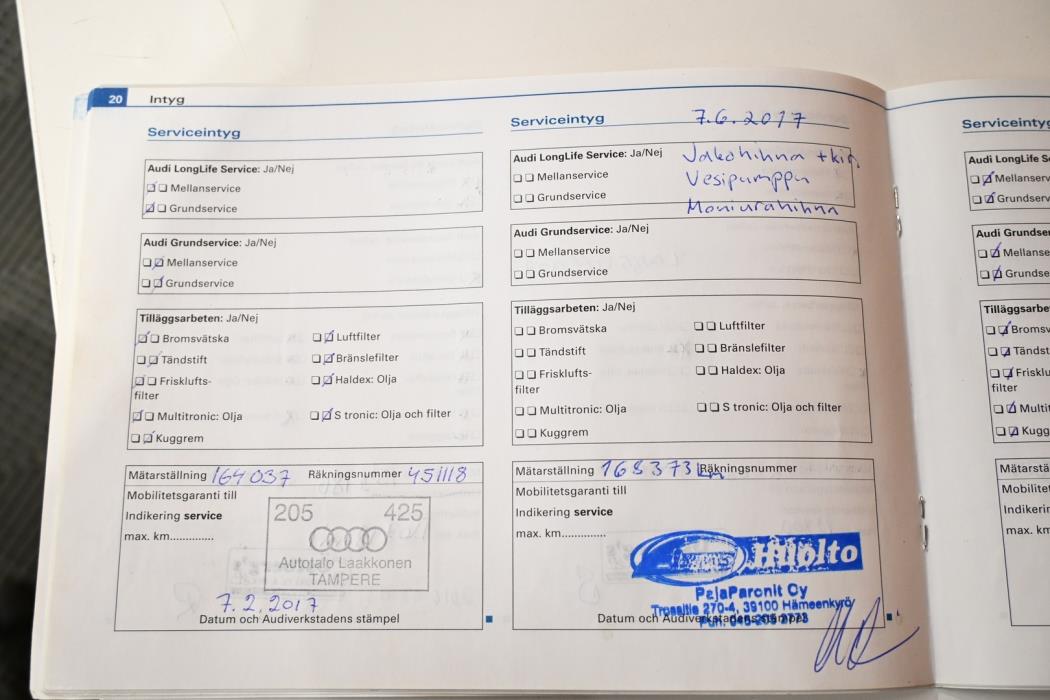 20 Intyg
Serviceintyg
Audi LongLife Service: Ja/Nej
Mellanservice
Grundservice
Audi Grundservice: Ja/Nej
Mellanservice
Grundservice
Tilläggsarbeten: Ja/Nej
Bromsvätska Luftfilter
Tändstift Bränslefilter
Frisklufts- Haldex: Olja
filter
Multitronic: Olja S tronic: Olja och filter
Kuggrem
Mätarställning 164037 Räkningsnummer 451118
Mobilitetsgaranti till
Indikering service
max. km..............
205 425
Autotalo Laakkonen
TAMPERE
7.2.2017
Datum och Audiverkstadens stämpel
Serviceintyg 7.6.2017
Audi LongLife Service: Ja/Nej Jakohihna +
Mellanservice Vesipumppu
Grundservice Moniurahihna
Audi Grundservice: Ja/Nej
Mellanservice
Grundservice
Tilläggsarbeten: Ja/Nej
Bromsvätska Luftfilter
Tändstift Bränslefilter
Frisklufts- Haldex: Olja
filter
Multitronic: Olja S tronic: Olja och filter
Kuggrem
Mätarställning 168373 km Räkningsnummer
Mobilitetsgaranti till
Indikering service
max. km..............
Huolto
PajaParonit Oy
270-4, 39100 Hämeenkyrö
Puh.
Datum och Audiverkstadens stämpel
Serviceintyg
Audi LongLife
Mellanserv
Grundserv
Audi Grundser
Mellanse
Grundse
Tilläggsarbe
Bromsv
Tändst
Friskl
filter
Multit
Kugg
Mätarstä
Mobilitet
Indikerin
max. km